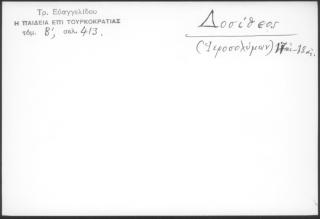 Τρ. Εὐαγγελίδου
Η ΠΑΙΔΕΙΑ ΕΠΙ ΤΟΥΡΚΟΚΡΑΤΙΑΣ
τόμ. Β', σελ. 413.
Δοσίθεος
(Ἱεροσολύμων) 17ος-18ος.